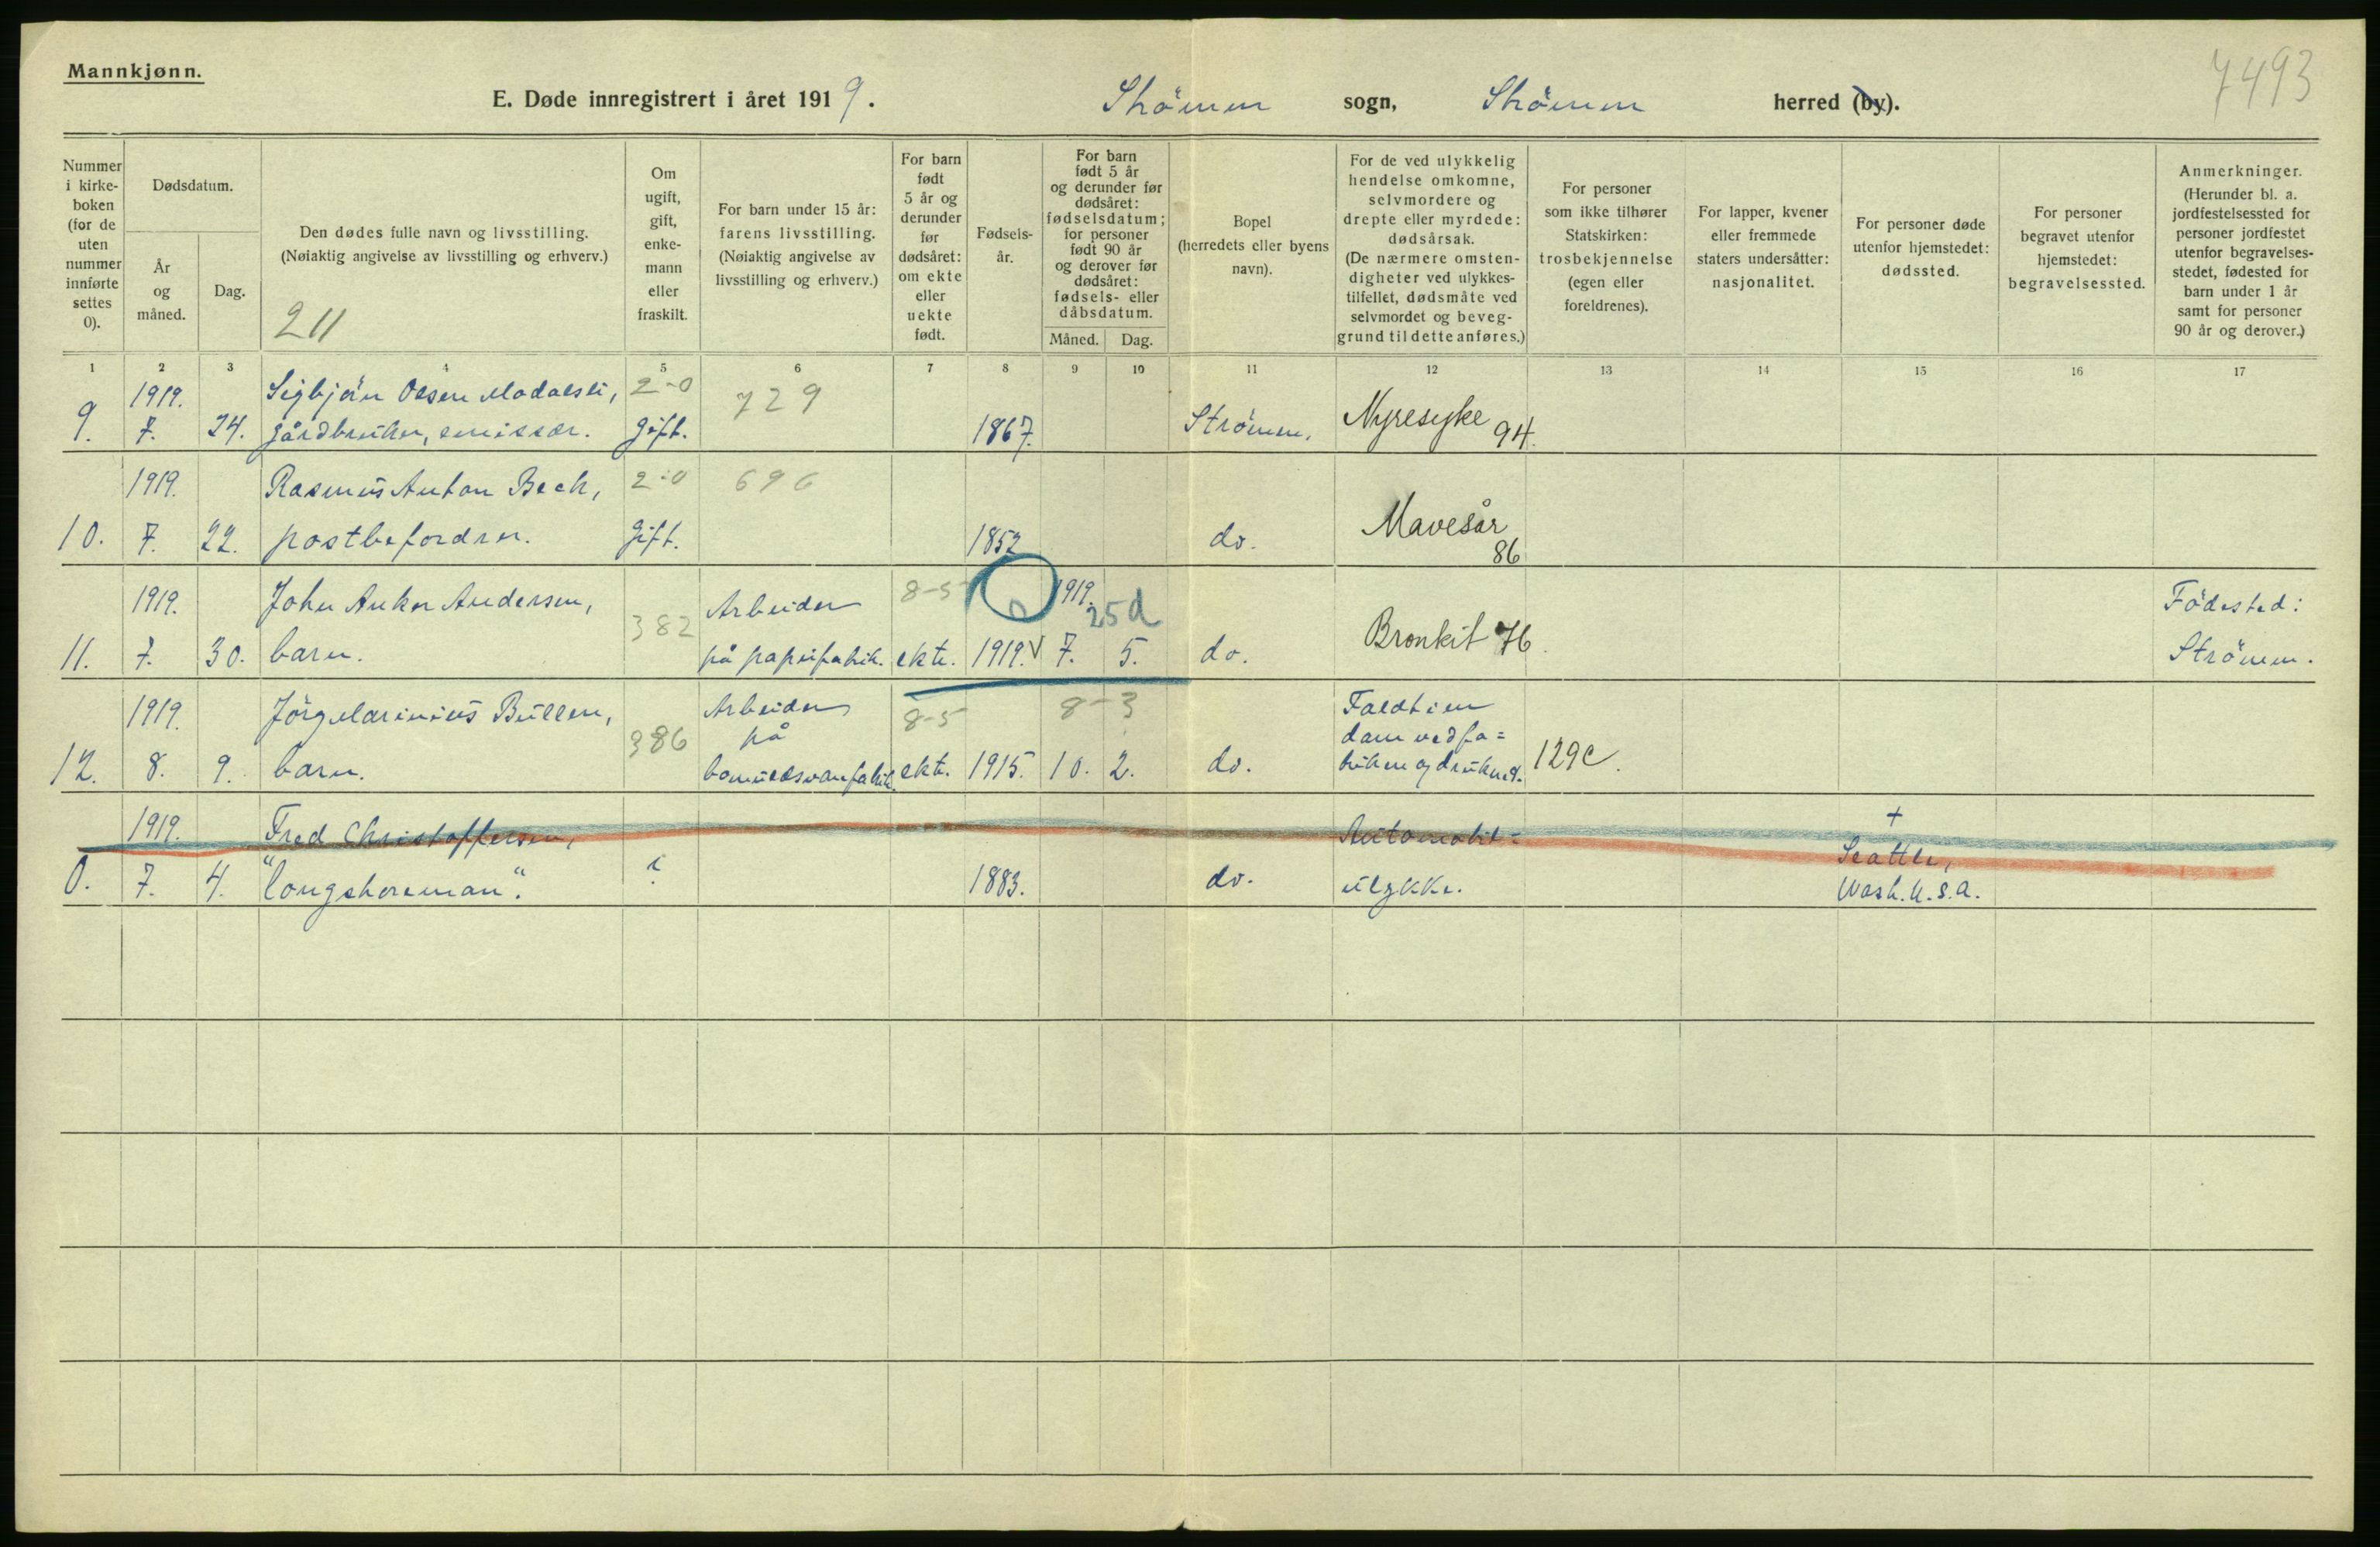 Mannkjønn.
E. Døde innregistrert i året 1919. Strömm sogn, Strömm herred (by).
7493
Nummer i kirke-boken (for de uten nummer innførte settes 0).
Dødsdatum.
År og måned.
Dag.
Den dødes fulle navn og livsstilling.
(Nøiaktig angivelse av livsstilling og erhverv.)
211
Om ugift, gift, enke-mann eller fraskilt.
For barn under 15 år: farens livsstilling.
(Nøiaktig angivelse av livsstilling og erhverv.)
For barn født 5 år og derunder før dødsåret: om ekte eller uekte født.
Fødsels-år.
For barn født 5 år og derunder før dødsåret: fødselsdatum; for personer født 90 år og derover før dødsåret: fødsels- eller dåbsdatum.
Måned. Dag.
Bopel (herredets eller byens navn).
For de ved ulykkelig hendelse omkomne, selvmordere og drepte eller myrdede: dødsårsak.
(De nærmere omsten-digheter ved ulykkes-tilfellet, dødsmåte ved selvmordet og beveg-grund til dette anføres.)
For personer som ikke tilhører Statskirken: trosbekjennelse (egen eller foreldrenes).
For lapper, kvener eller fremmede staters undersåtter: nasjonalitet.
For personer døde utenfor hjemstedet: dødssted.
For personer begravet utenfor hjemstedet: begravelsessted.
Anmerkninger.
(Herunder bl. a. jordfestelsessted for personer jordfestet utenfor begravelses-stedet, fødested for barn under 1 år samt for personer 90 år og derover.)
1 2 3 4 5 6 7 8 9 10 11 12 13 14 15 16 17
1919. Sigbjörn Olsen 2-0 729
9. 7. 24. gårdbruker, emissær. gift. 1867. Strömm. Nyresyke 94.
1919. Rasmus Anton Bech, 2-0 696
10. 7. 22. postbefordrer. gift. 1852 do. Mavesår 86
1919. John Anker Andersen, 382 Arbeider 8-5 0 1919. 25d Födested:
11. 7. 30. barn. på papirfabrik. ekte. 1919. 7. 5. do. Bronkit 76. Strömm.
1919. Jörg Marinius Bullen, 386 Arbeider på 8-5 8-3 Faldt i en dam ved fa=
12. 8. 9. barn. bomuldsvarefabrik. ekte. 1915. 10. 2. do. briken og druknet. 129c.
1919. Fred Christoffersen, Automobil= +
0. 7. 4. "longshoreman". ? 1883. do. ulykke. Seattle, Wash. U.S.A.